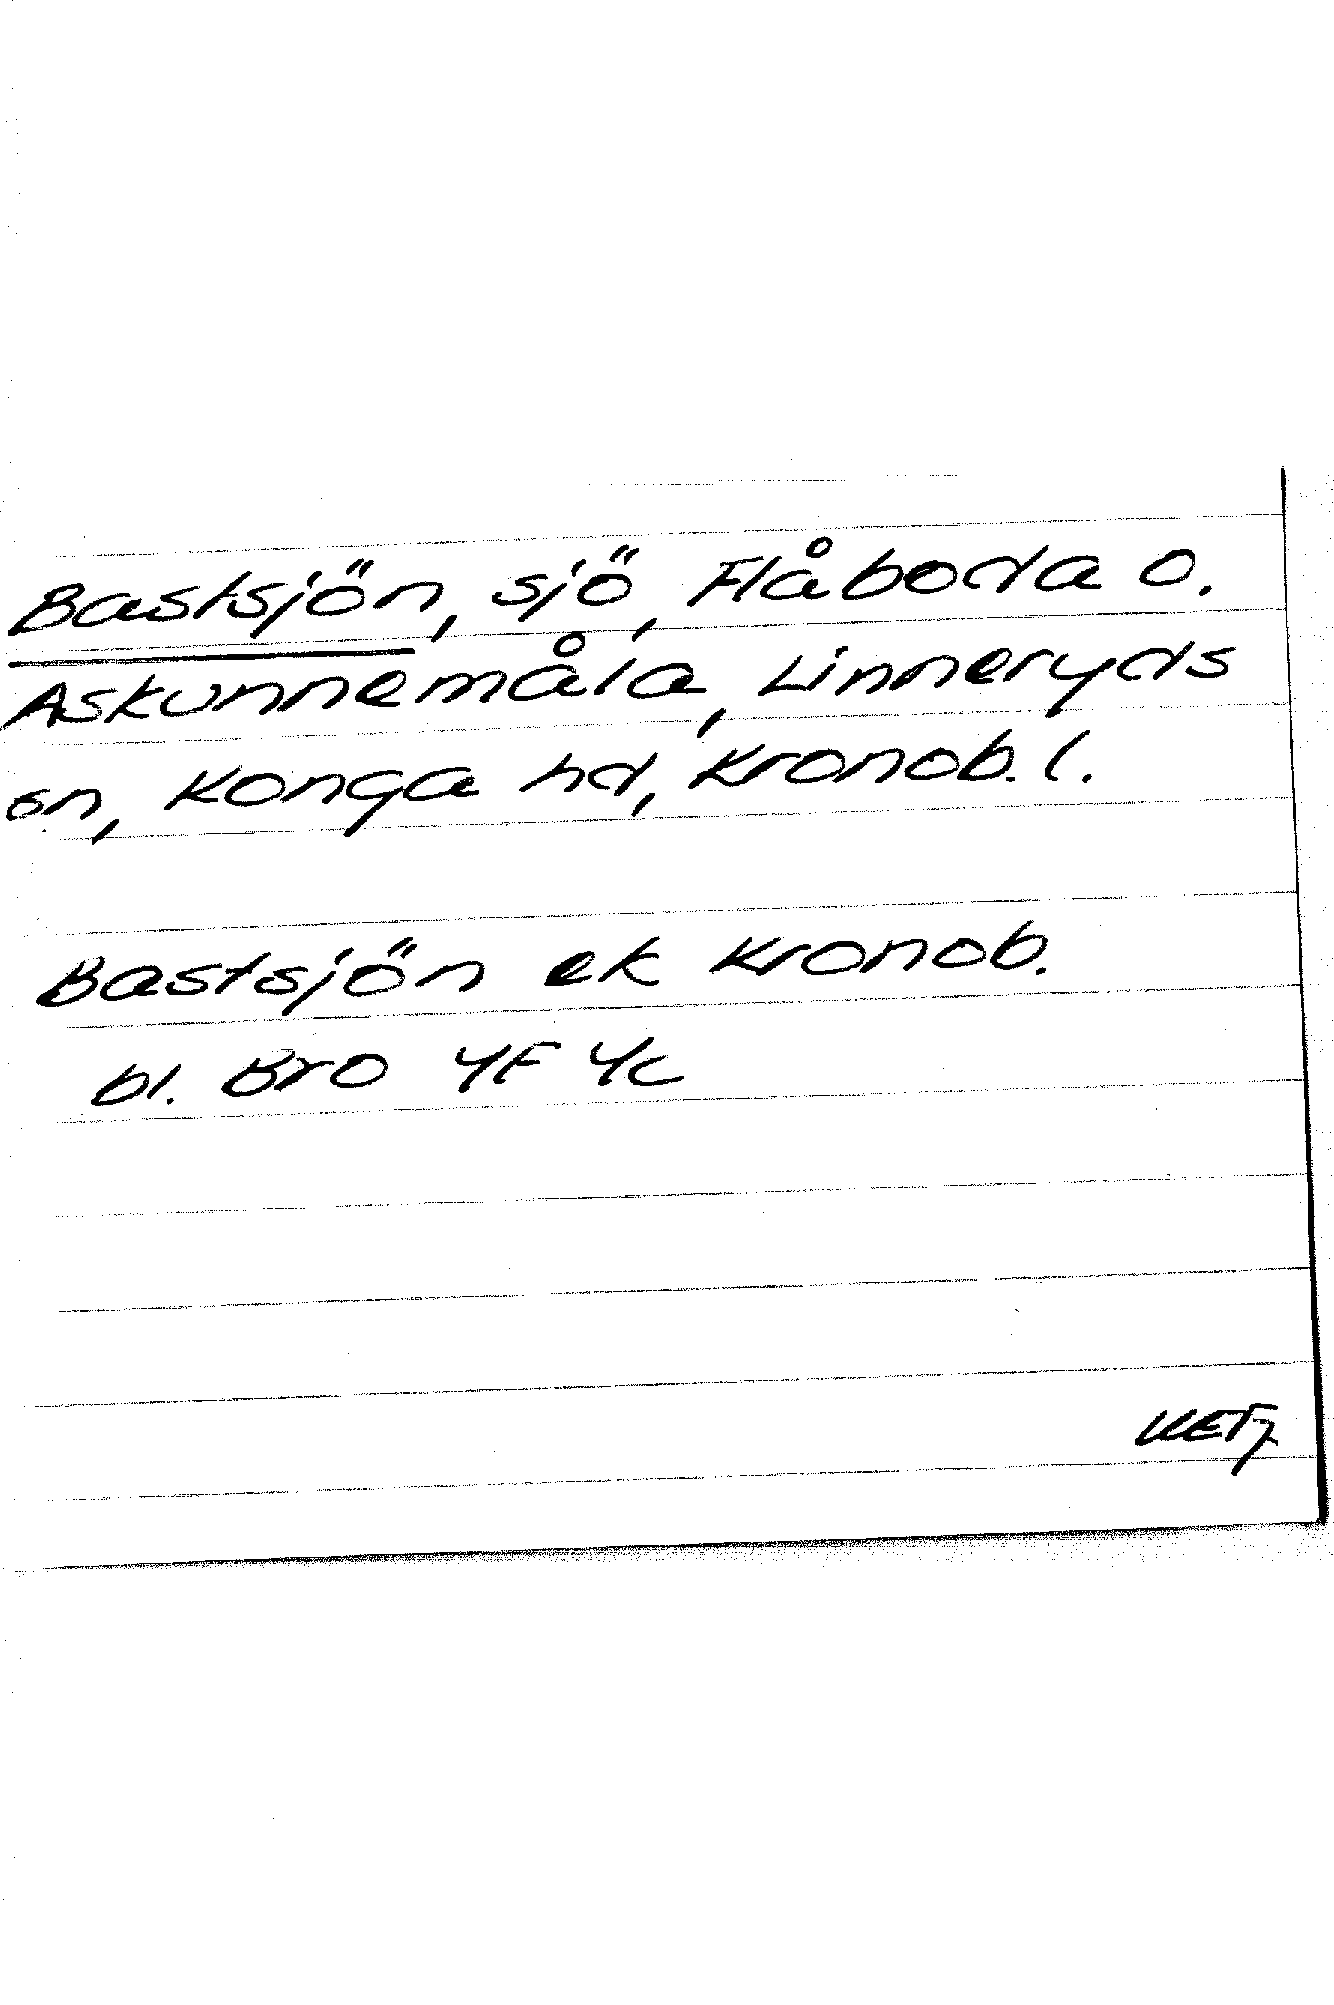 Bastsjön, sjö, Flåboda o.
Askunnemåla, Linneryds
sn, Konga hd, Kronob. l.
Bastsjön ek Kronob.
bl. Bro 4F 4c